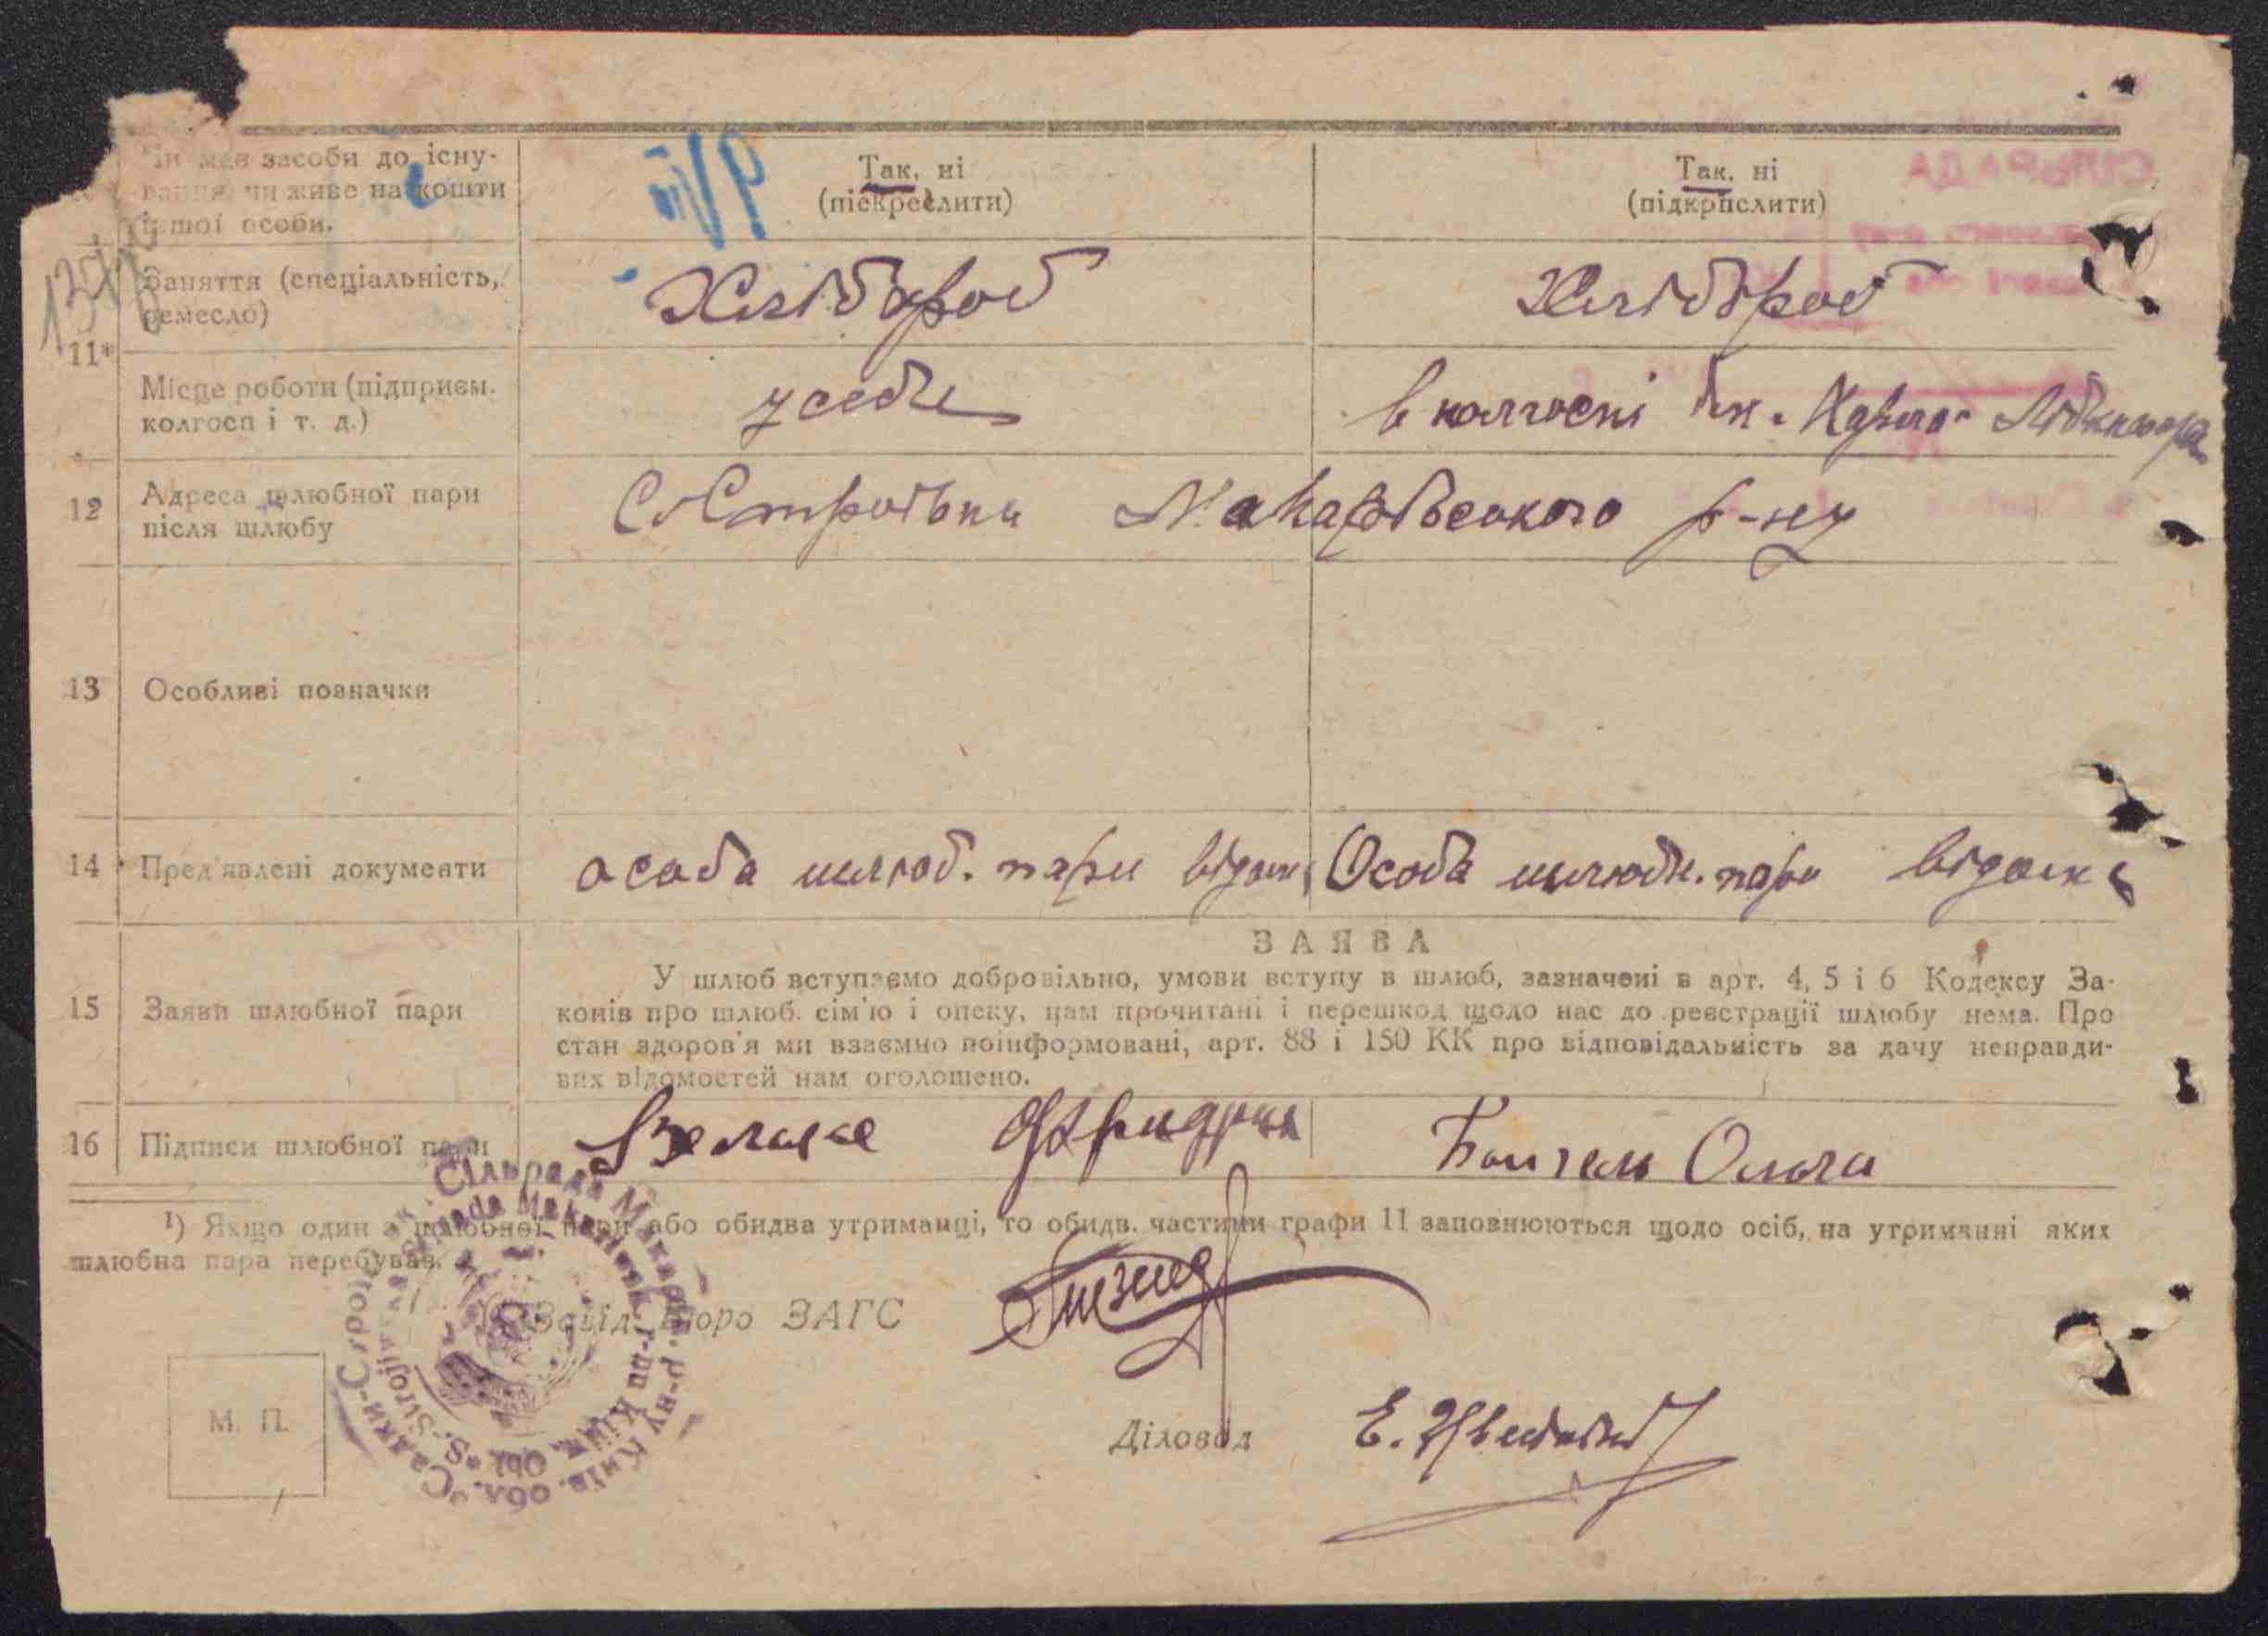 Чи має засоби до існу-
вання чи живе на кошти
іншої особи.
Так, ні
(підкреслити)
Так, ні
(підкреслити)
11*
Заняття (спеціальність,
ремесло)
Хлібороб
Хлібороб
Місце роботи (підприєм.
колгосп і т. д.)
у себе
в колгоспі ім. Карла Лібкнехта
12
Адреса шлюбної пари
після шлюбу
С. Строївка Макарівського р-ну
13
Особливі позначки
14
Пред'явлені документи
особа шлюб. пари відома
Особа шлюбн. пари відома
15
Заяви шлюбної пари
ЗАЯВА
У шлюб вступаємо добровільно, умови вступу в шлюб, зазначені в арт. 4, 5 і 6 Кодексу За-
конів про шлюб. сім'ю і опеку, нам прочитані і перешкод щодо нас до реєстрації шлюбу нема. Про
стан здоров'я ми взаємно поінформовані, арт. 88 і 150 КК про відповідальність за дачу неправди-
вих відомостей нам оголошено.
16
Підписи шлюбної пари
Ольга
¹) Якщо один з шлюбної пари або обидва утриманці, то обидв. частини графи 11 заповнюються щодо осіб, на утриманні яких
шлюбна пара перебуває.
Завід. Бюро ЗАГС
М. П.
Діловод
Сільрада Макарів. р-ну Київ. обл.